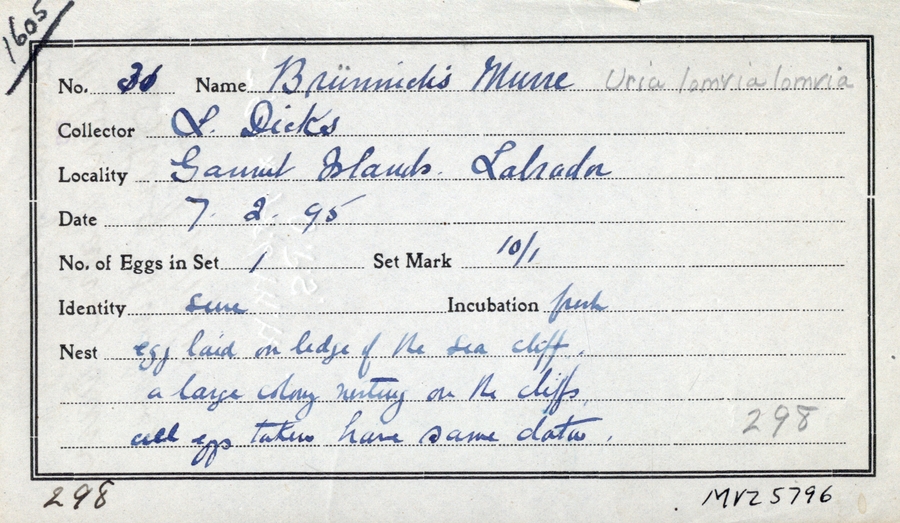 1605
No. 30 Name Brünnich's Murre Uria lomvia lomvia
Collector L. Dicks
Locality Gannet Islands. Labrador
Date 7. 2. 95
No. of Eggs in Set 1 Set Mark 10/1
Identity sure Incubation fresh
Nest egg laid on ledge of the sea cliff.
a large colony nesting on the cliffs,
all eggs taken have same data.
298
298 MVZ 5796